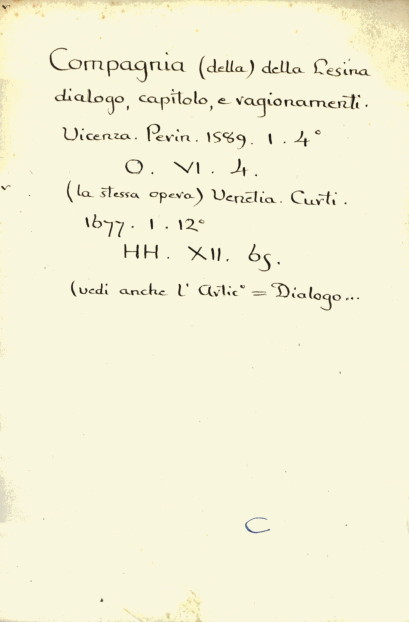 Compagnia (della) della Lesina
dialogo, capitolo, e ragionamenti.
Vicenza. Perin. 1589. 1. 4°
O. VI. 4.
(la stessa opera) Venetia. Curti.
1677. 1. 12°
HH. XII. 65.
(vedi anche l' Artic° = Dialogo...
C